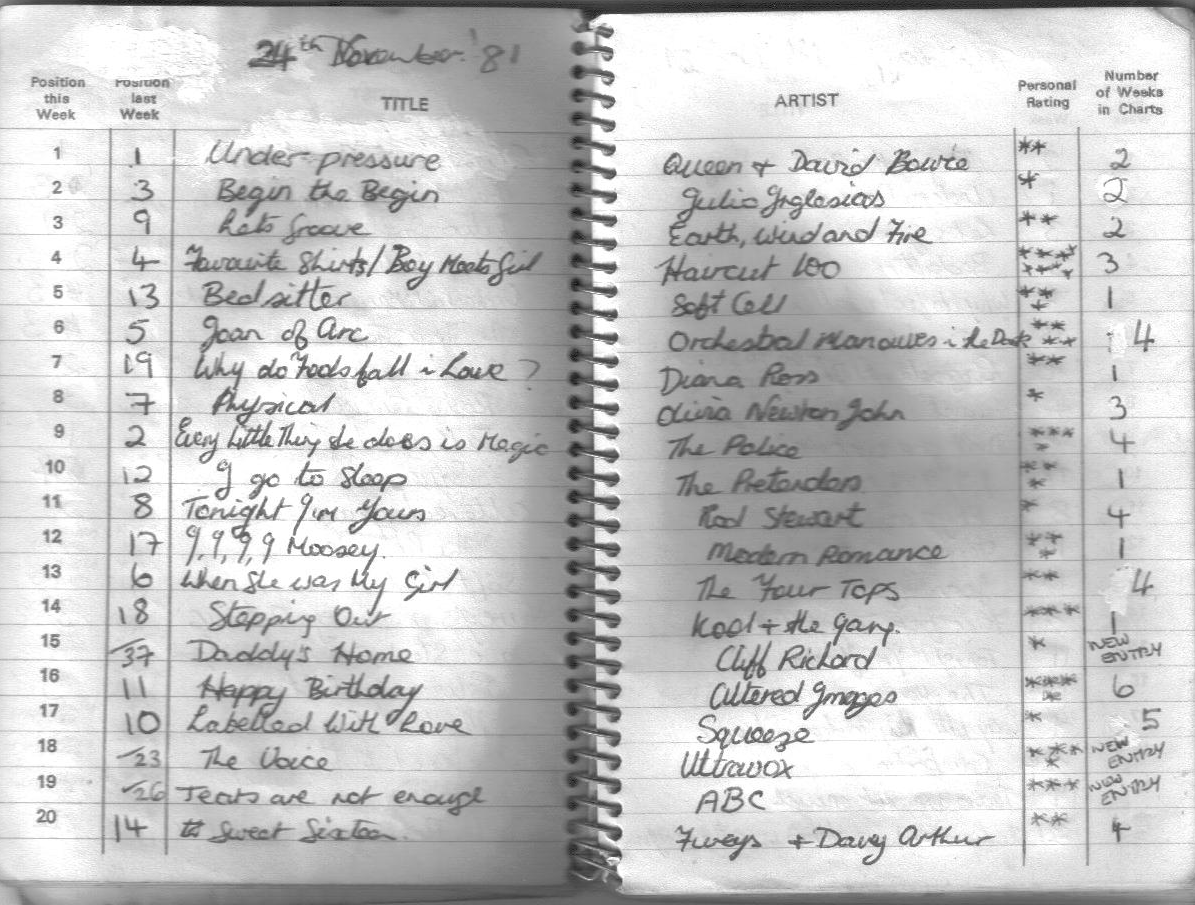 24th November '81
Position this Week Position last Week TITLE ARTIST Personal Rating Number of Weeks in Charts
1 1 Under pressure Queen + David Bowie ** 2
2 3 Begin the Begin Julio Inglesias * 2
3 9 Lets Groove Earth, Wind and Fire ** 2
4 4 Favourite Shirts/ Boy Meets Girl Haircut 100 ******** 3
5 13 Bedsitter Soft Cell *** 1
6 5 Joan of Arc Orchestral Manouves in the Dark **** 4
7 19 Why do Fools fall in Love? Diana Ross ** 1
8 7 Physical Olivia Newton John * 3
9 2 Every Little Thing She does is Magic The Police **** 4
10 12 I go to Sleep The Pretenders *** 1
11 8 Tonight I'm Yours Rod Stewart * 4
12 17 I, I, I, I Moosey. Modern Romance *** 1
13 6 When She was My Girl The Four Tops ** 4
14 18 Stepping Out Kool + the Gang. *** 1
15 37 Daddy's Home Cliff Richard * NEW ENTRY
16 11 Happy Birthday Altered Images **** 6
17 10 Labelled With Love Squeeze * 5
18 23 The Voice Ultravox **** NEW ENTRY
19 26 Tears are not enough ABC *** NEW ENTRY
20 14 Sweet Sixteen. Fureys + Davy Arthur ** 4